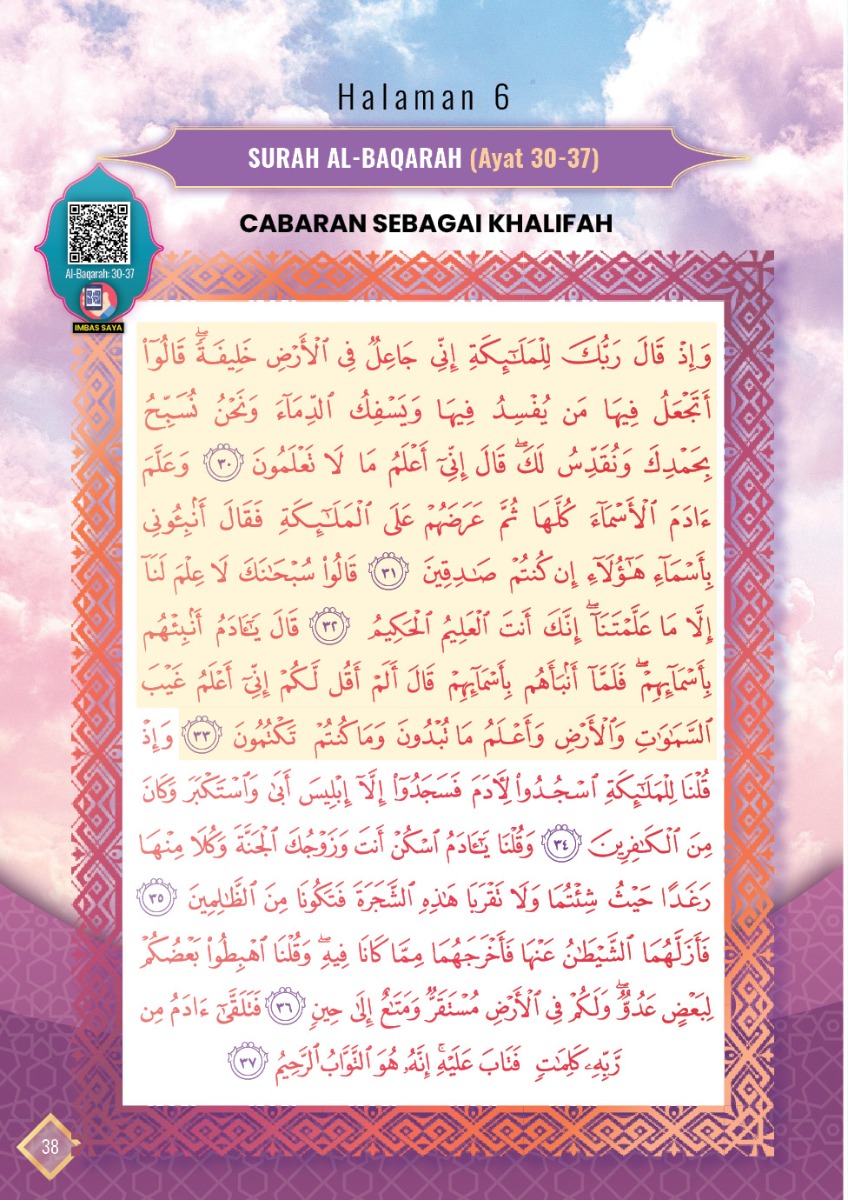 Halaman 6
SURAH AL-BAQARAH (Ayat 30-37)
CABARAN SEBAGAI KHALIFAH
Al-Baqarah: 30-37
IMBAS SAYA
وَإِذۡ قَالَ رَبُّكَ لِلۡمَلَٰٓئِكَةِ إِنِّي جَاعِلٞ فِي ٱلۡأَرۡضِ خَلِيفَةٗۖ قَالُوٓاْ
أَتَجۡعَلُ فِيهَا مَن يُفۡسِدُ فِيهَا وَيَسۡفِكُ ٱلدِّمَآءَ وَنَحۡنُ نُسَبِّحُ
بِحَمۡدِكَ وَنُقَدِّسُ لَكَۖ قَالَ إِنِّيٓ أَعۡلَمُ مَا لَا تَعۡلَمُونَ ٣٠ وَعَلَّمَ
ءَادَمَ ٱلۡأَسۡمَآءَ كُلَّهَا ثُمَّ عَرَضَهُمۡ عَلَى ٱلۡمَلَٰٓئِكَةِ فَقَالَ أَنۢبِـُٔونِي
بِأَسۡمَآءِ هَٰٓؤُلَآءِ إِن كُنتُمۡ صَٰدِقِينَ ٣١ قَالُواْ سُبۡحَٰنَكَ لَا عِلۡمَ لَنَآ
إِلَّا مَا عَلَّمۡتَنَآۖ إِنَّكَ أَنتَ ٱلۡعَلِيمُ ٱلۡحَكِيمُ ٣٢ قَالَ يَٰٓـَٔادَمُ أَنۢبِئۡهُم
بِأَسۡمَآئِهِمۡۖ فَلَمَّآ أَنۢبَأَهُم بِأَسۡمَآئِهِمۡ قَالَ أَلَمۡ أَقُل لَّكُمۡ إِنِّيٓ أَعۡلَمُ غَيۡبَ
ٱلسَّمَٰوَٰتِ وَٱلۡأَرۡضِ وَأَعۡلَمُ مَا تُبۡدُونَ وَمَا كُنتُمۡ تَكۡتُمُونَ ٣٣ وَإِذۡ
قُلۡنَا لِلۡمَلَٰٓئِكَةِ ٱسۡجُدُواْ لِأٓدَمَ فَسَجَدُوٓاْ إِلَّآ إِبۡلِيسَ أَبَىٰ وَٱسۡتَكۡبَرَ وَكَانَ
مِنَ ٱلۡكَٰفِرِينَ ٣٤ وَقُلۡنَا يَٰٓـَٔادَمُ ٱسۡكُنۡ أَنتَ وَزَوۡجُكَ ٱلۡجَنَّةَ وَكُلَا مِنۡهَا
رَغَدًا حَيۡثُ شِئۡتُمَا وَلَا تَقۡرَبَا هَٰذِهِ ٱلشَّجَرَةَ فَتَكُونَا مِنَ ٱلظَّٰلِمِينَ ٣٥
فَأَزَلَّهُمَا ٱلشَّيۡطَٰنُ عَنۡهَا فَأَخۡرَجَهُمَا مِمَّا كَانَا فِيهِۖ وَقُلۡنَا ٱهۡبِطُواْ بَعۡضُكُمۡ
لِبَعۡضٍ عَدُوّٞۖ وَلَكُمۡ فِي ٱلۡأَرۡضِ مُسۡتَقَرّٞ وَمَتَٰعٌ إِلَىٰ حِينٖ ٣٦ فَتَلَقَّىٰٓ ءَادَمُ مِن
رَّبِّهِۦ كَلِمَٰتٖ فَتَابَ عَلَيۡهِۚ إِنَّهُۥ هُوَ ٱلتَّوَّابُ ٱلرَّحِيمُ ٣٧
38